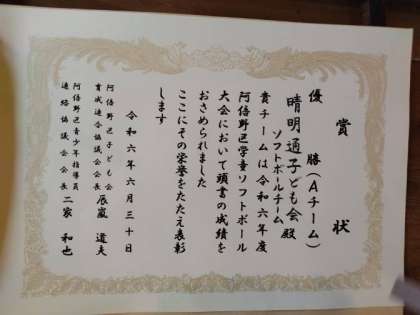 賞状
優勝(Aチーム)
晴明通子ども会
ソフトボールチーム殿
貴チームは令和六年度
阿倍野区学童ソフトボール
大会において頭書の成績を
おさめられました
ここにその栄誉をたたえ表彰
します
令和六年六月三十日
阿倍野区子ども会
育成連合協議会会長 辰巌 道夫
阿倍野区青少年指導員
連絡協議会会長 二家 和也